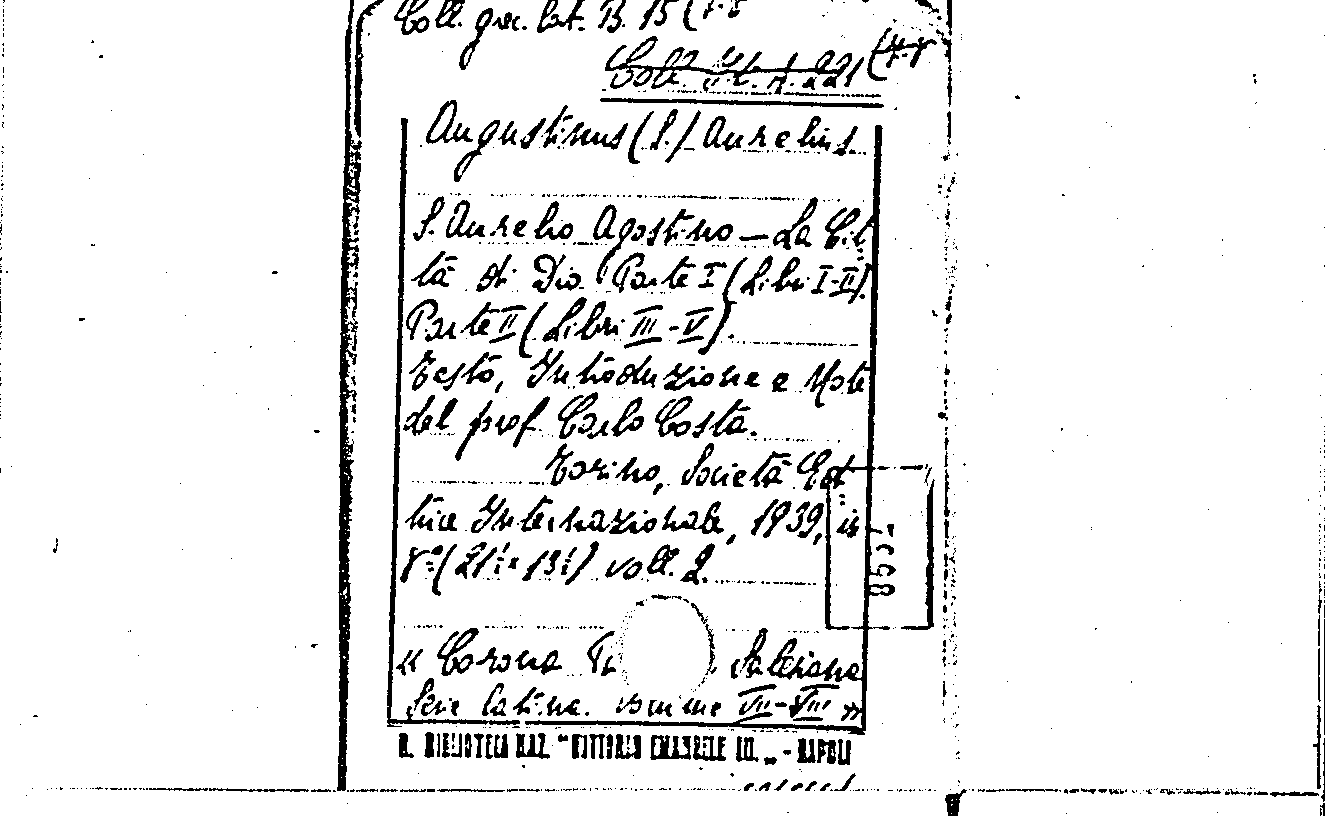 Coll. gr. lat. B. 15 (7-8
Coll. It. A. 221 (7-8
Augustinus (S.) Aurelius.
S. Aurelio Agostino — La Cit
tà di Dio. Parte I (Libri I-II).
Parte II (Libri III - V).
Testo, Introduzione e Note
del prof. Carlo Costa.
Torino, Società Edi
trice Internazionale, 1939, in
8° (21 x 13) voll. 2.
8552
« Corona Salesiana
Serie latina. volume VII-VIII »
R. BIBLIOTECA NAZ. "VITTORIO EMANUELE III." - NAPOLI